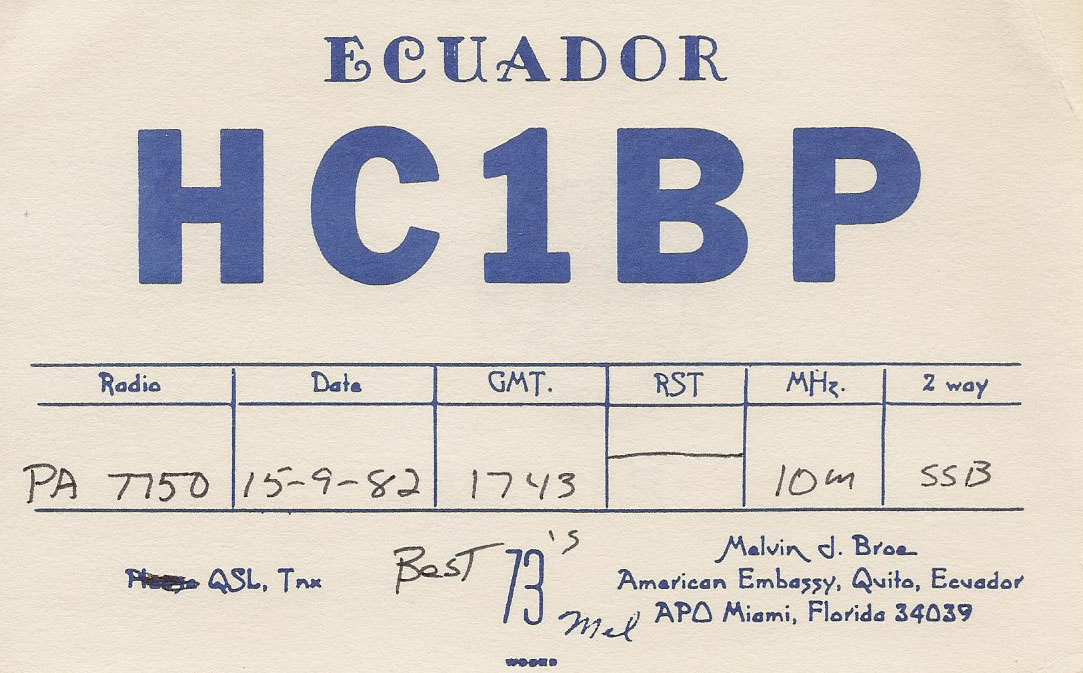 ECUADOR
HC1BP
Radio Date GMT. RST MHz. 2 way
PA 7750 15-9-82 1743 10m SSB
QSL, Tnx
Best 73's
Mel
Melvin J. Broe
American Embassy, Quito, Ecuador
APO Miami, Florida 34039